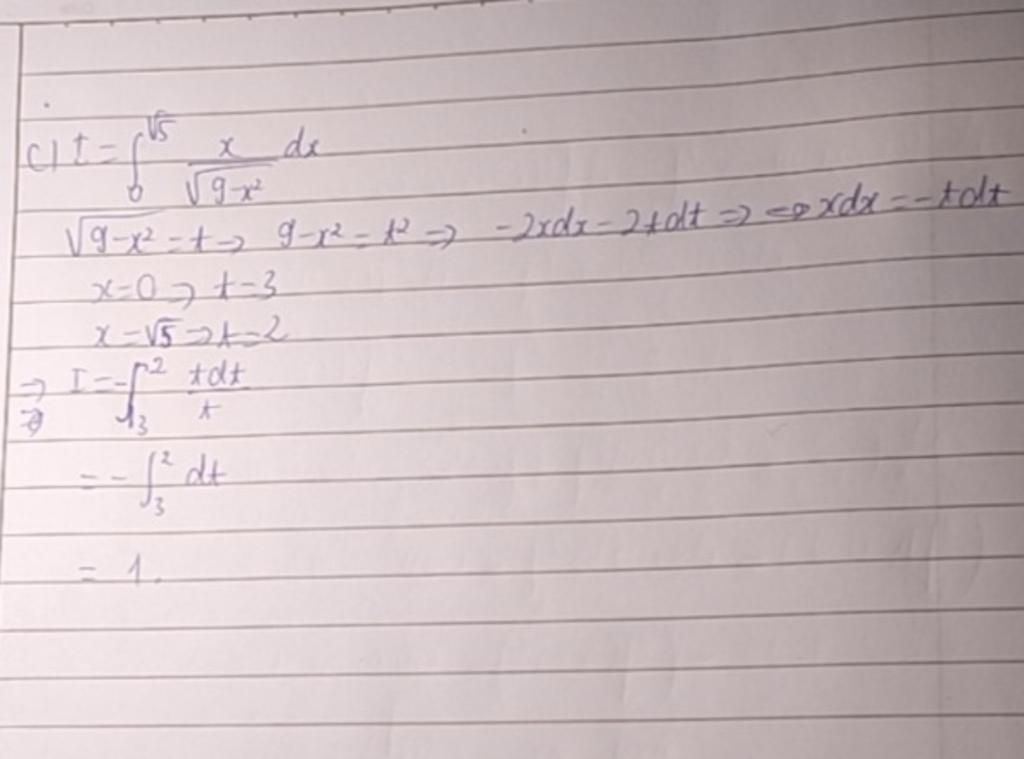 c) I = ∫₀^√5 x/√(9-x²) dx
√(9-x²) = t → 9-x² = t² => -2xdx = 2tdt => <=> xdx = -tdt
x=0 => t=3
x=√5 => t=2
=> I = -∫₃² tdt/t
= -∫₃² dt
= 1.